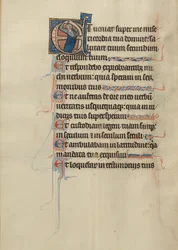 Et veniat super me mise
ricordia tua domine sa
lutare tuum secundum
eloquium tuum
Et respondebo exprobrantibus mi
chi verbum: quia speravi in ser
monibus tuis
Et ne auferas de ore meo verbum
veritatis usquequaq: quia in iu
diciis tuis supersperavi
Et custodiam legem tuam semp:
in seculum et in seculum seculi
Et ambulabam in latitudine: quia
mandata tua exquisivi
Et loquebar in testimoniis tuis